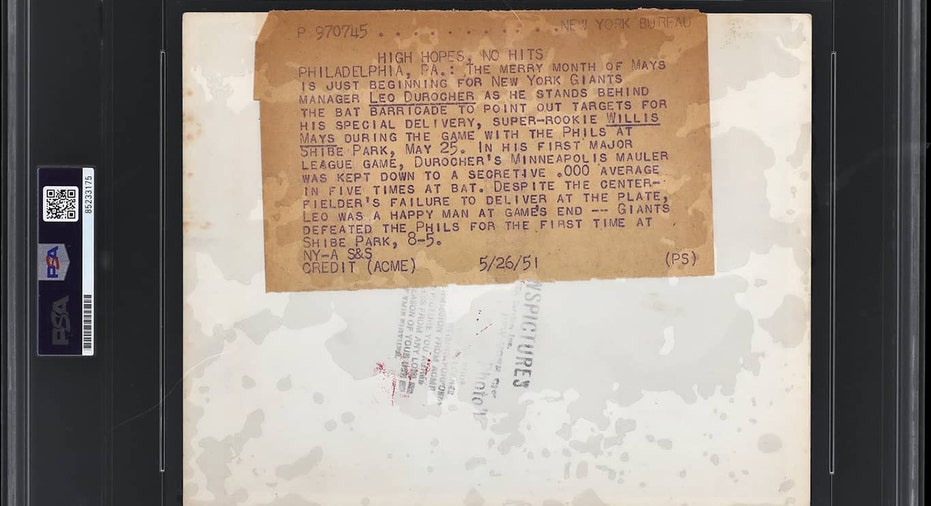 P 970745 . . . . . . . . . . . NEW YORK BUREAU
HIGH HOPES, NO HITS
PHILADELPHIA, PA.: THE MERRY MONTH OF MAYS
IS JUST BEGINNING FOR NEW YORK GIANTS
MANAGER LEO DUROCHER AS HE STANDS BEHIND
THE BAT BARRICADE TO POINT OUT TARGETS FOR
HIS SPECIAL DELIVERY, SUPER-ROOKIE WILLIS
MAYS DURING THE GAME WITH THE PHILS AT
SHIBE PARK, MAY 25. IN HIS FIRST MAJOR
LEAGUE GAME, DUROCHER'S MINNEAPOLIS MAULER
WAS KEPT DOWN TO A SECRETIVE .000 AVERAGE
IN FIVE TIMES AT BAT. DESPITE THE CENTER-
FIELDER'S FAILURE TO DELIVER AT THE PLATE,
LEO WAS A HAPPY MAN AT GAME'S END -- GIANTS
DEFEATED THE PHILS FOR THE FIRST TIME AT
SHIBE PARK, 8-5.
NY-A S&S
CREDIT (ACME) 5/26/51 (PS)
85233175
PSA
PSA
NSPICTURES